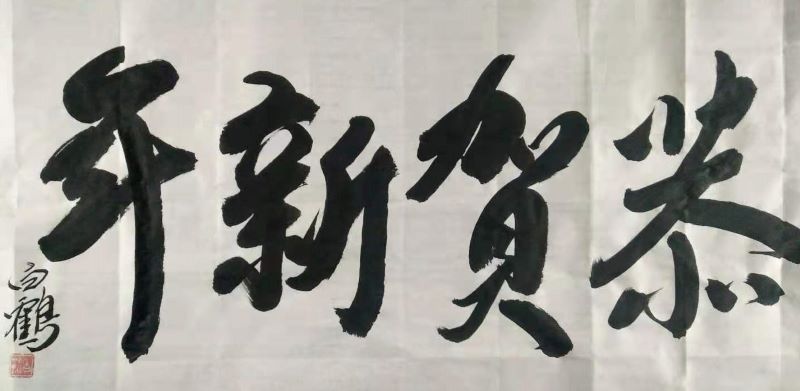 恭賀新年
白鶴